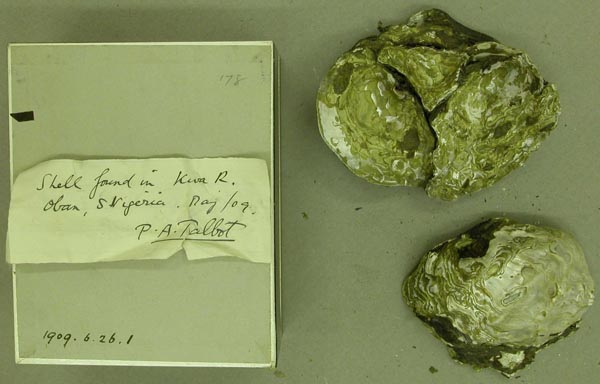 178
Shell found in Kwa R.
Oban, S Nigeria. May/09.
P.A. Talbot
1909.6.26.1